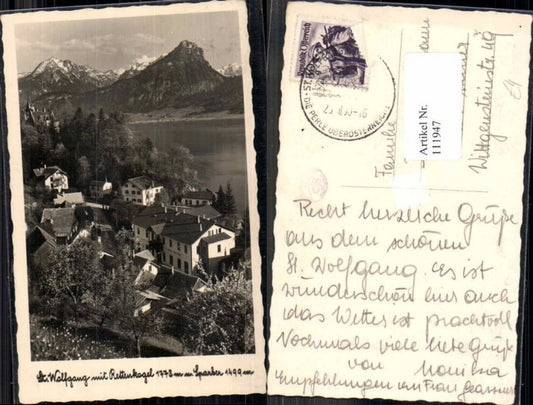 St. Wolfgang mit Rettenkogel 1778 m u. Sparber 1499 m
DIE PERLE OBERÖSTERREICHS
Familie
Wittgensteinstr. 49
Artikel Nr.
111947
Recht herzliche Grüße
aus dem schönen
St. Wolfgang. Es ist
wunderschön hier auch
das Wetter ist prachtvoll
Nochmals viele liebe Grüße
von Monika
Empfehlungen an Frau